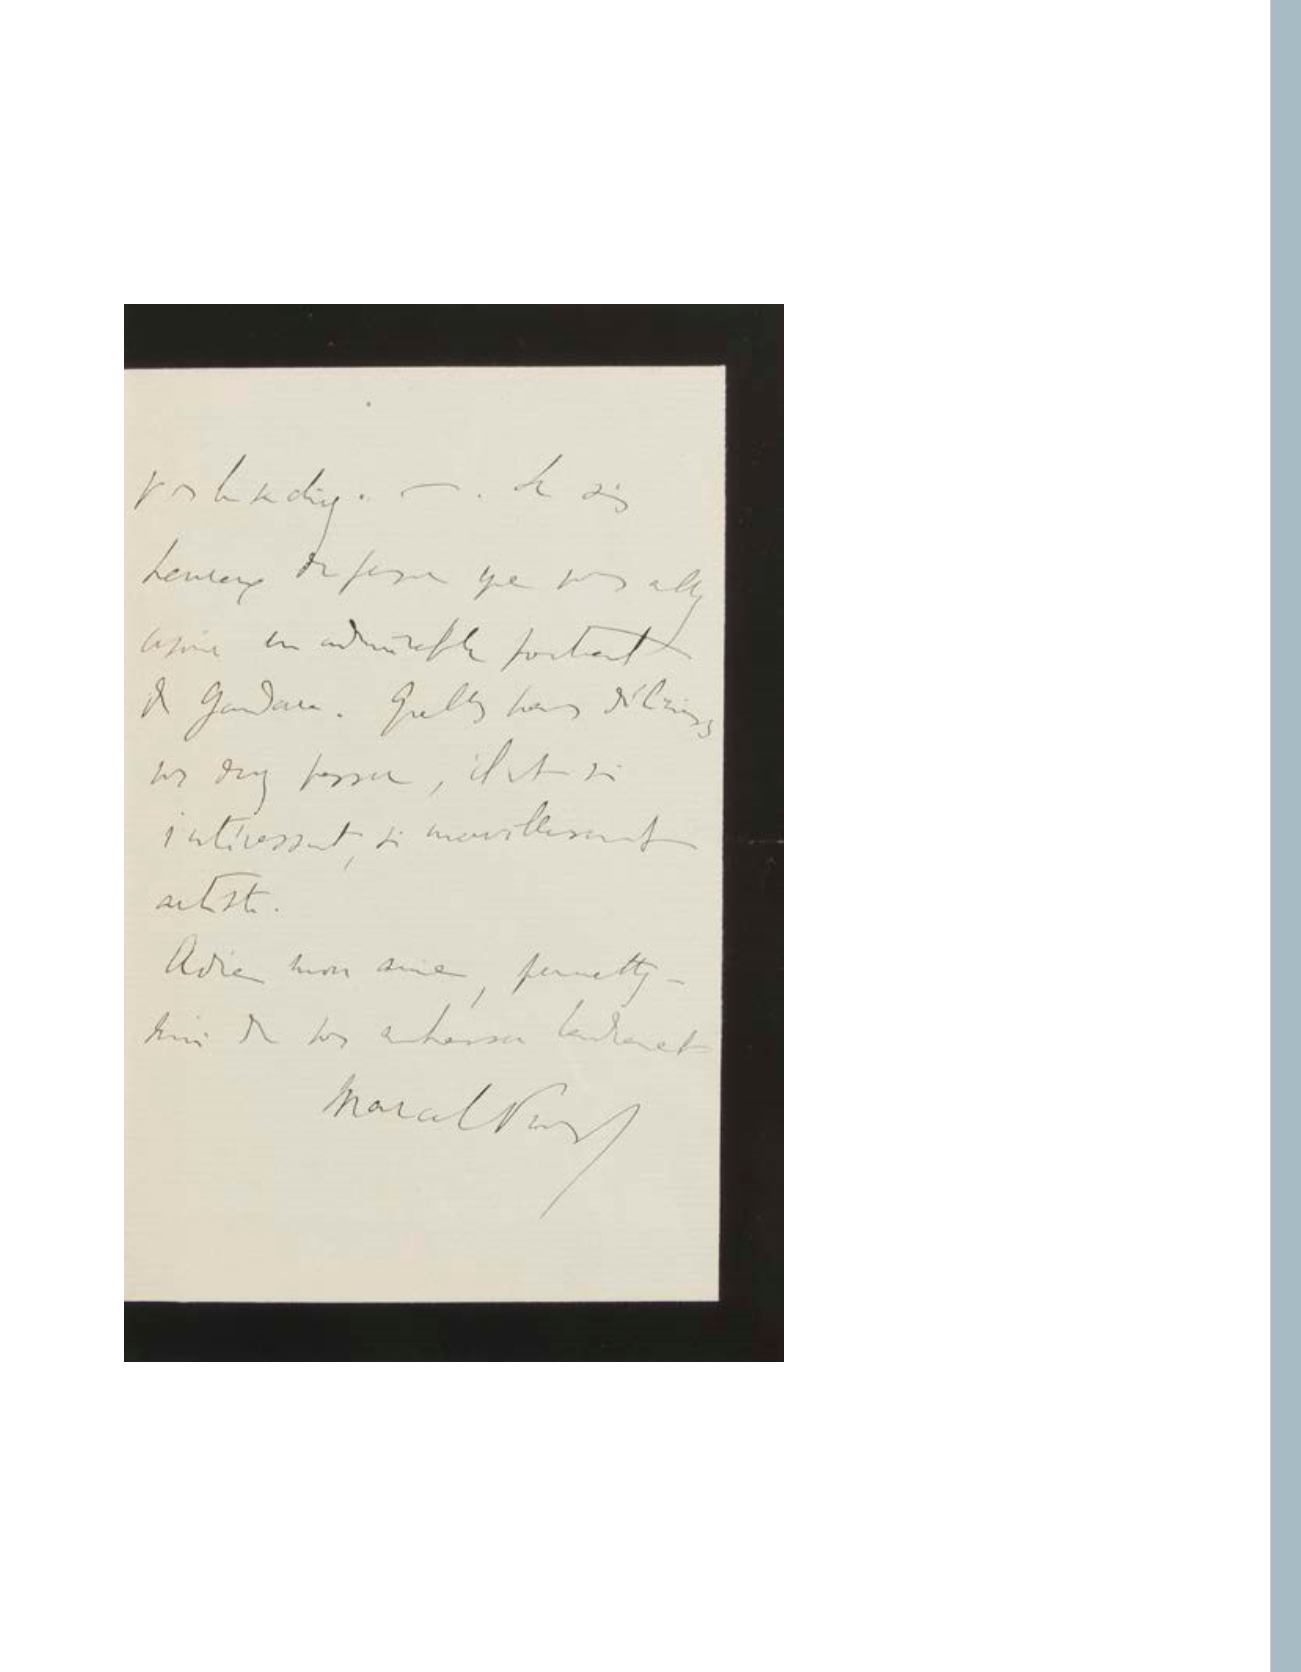 vous le rediez. — . Je suis
heureux de penser que vous allez
avoir un admirable portrait
de Gandara. Quelles heures délicieuses
vous devez passer, il est si
intéressant, si merveilleusement
artiste.
Adieu mon amie, permettez-
moi de vous embrasser tendrement
Marcel Proust